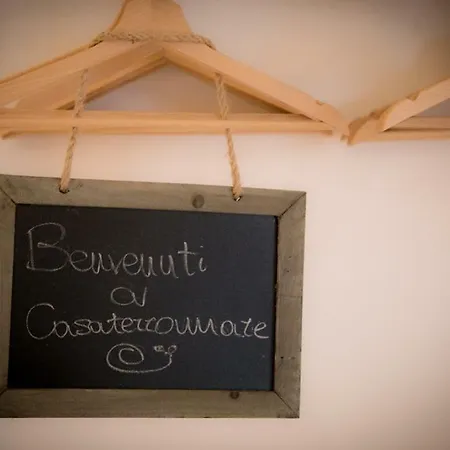 Benvenuti
a
Casaterraumare